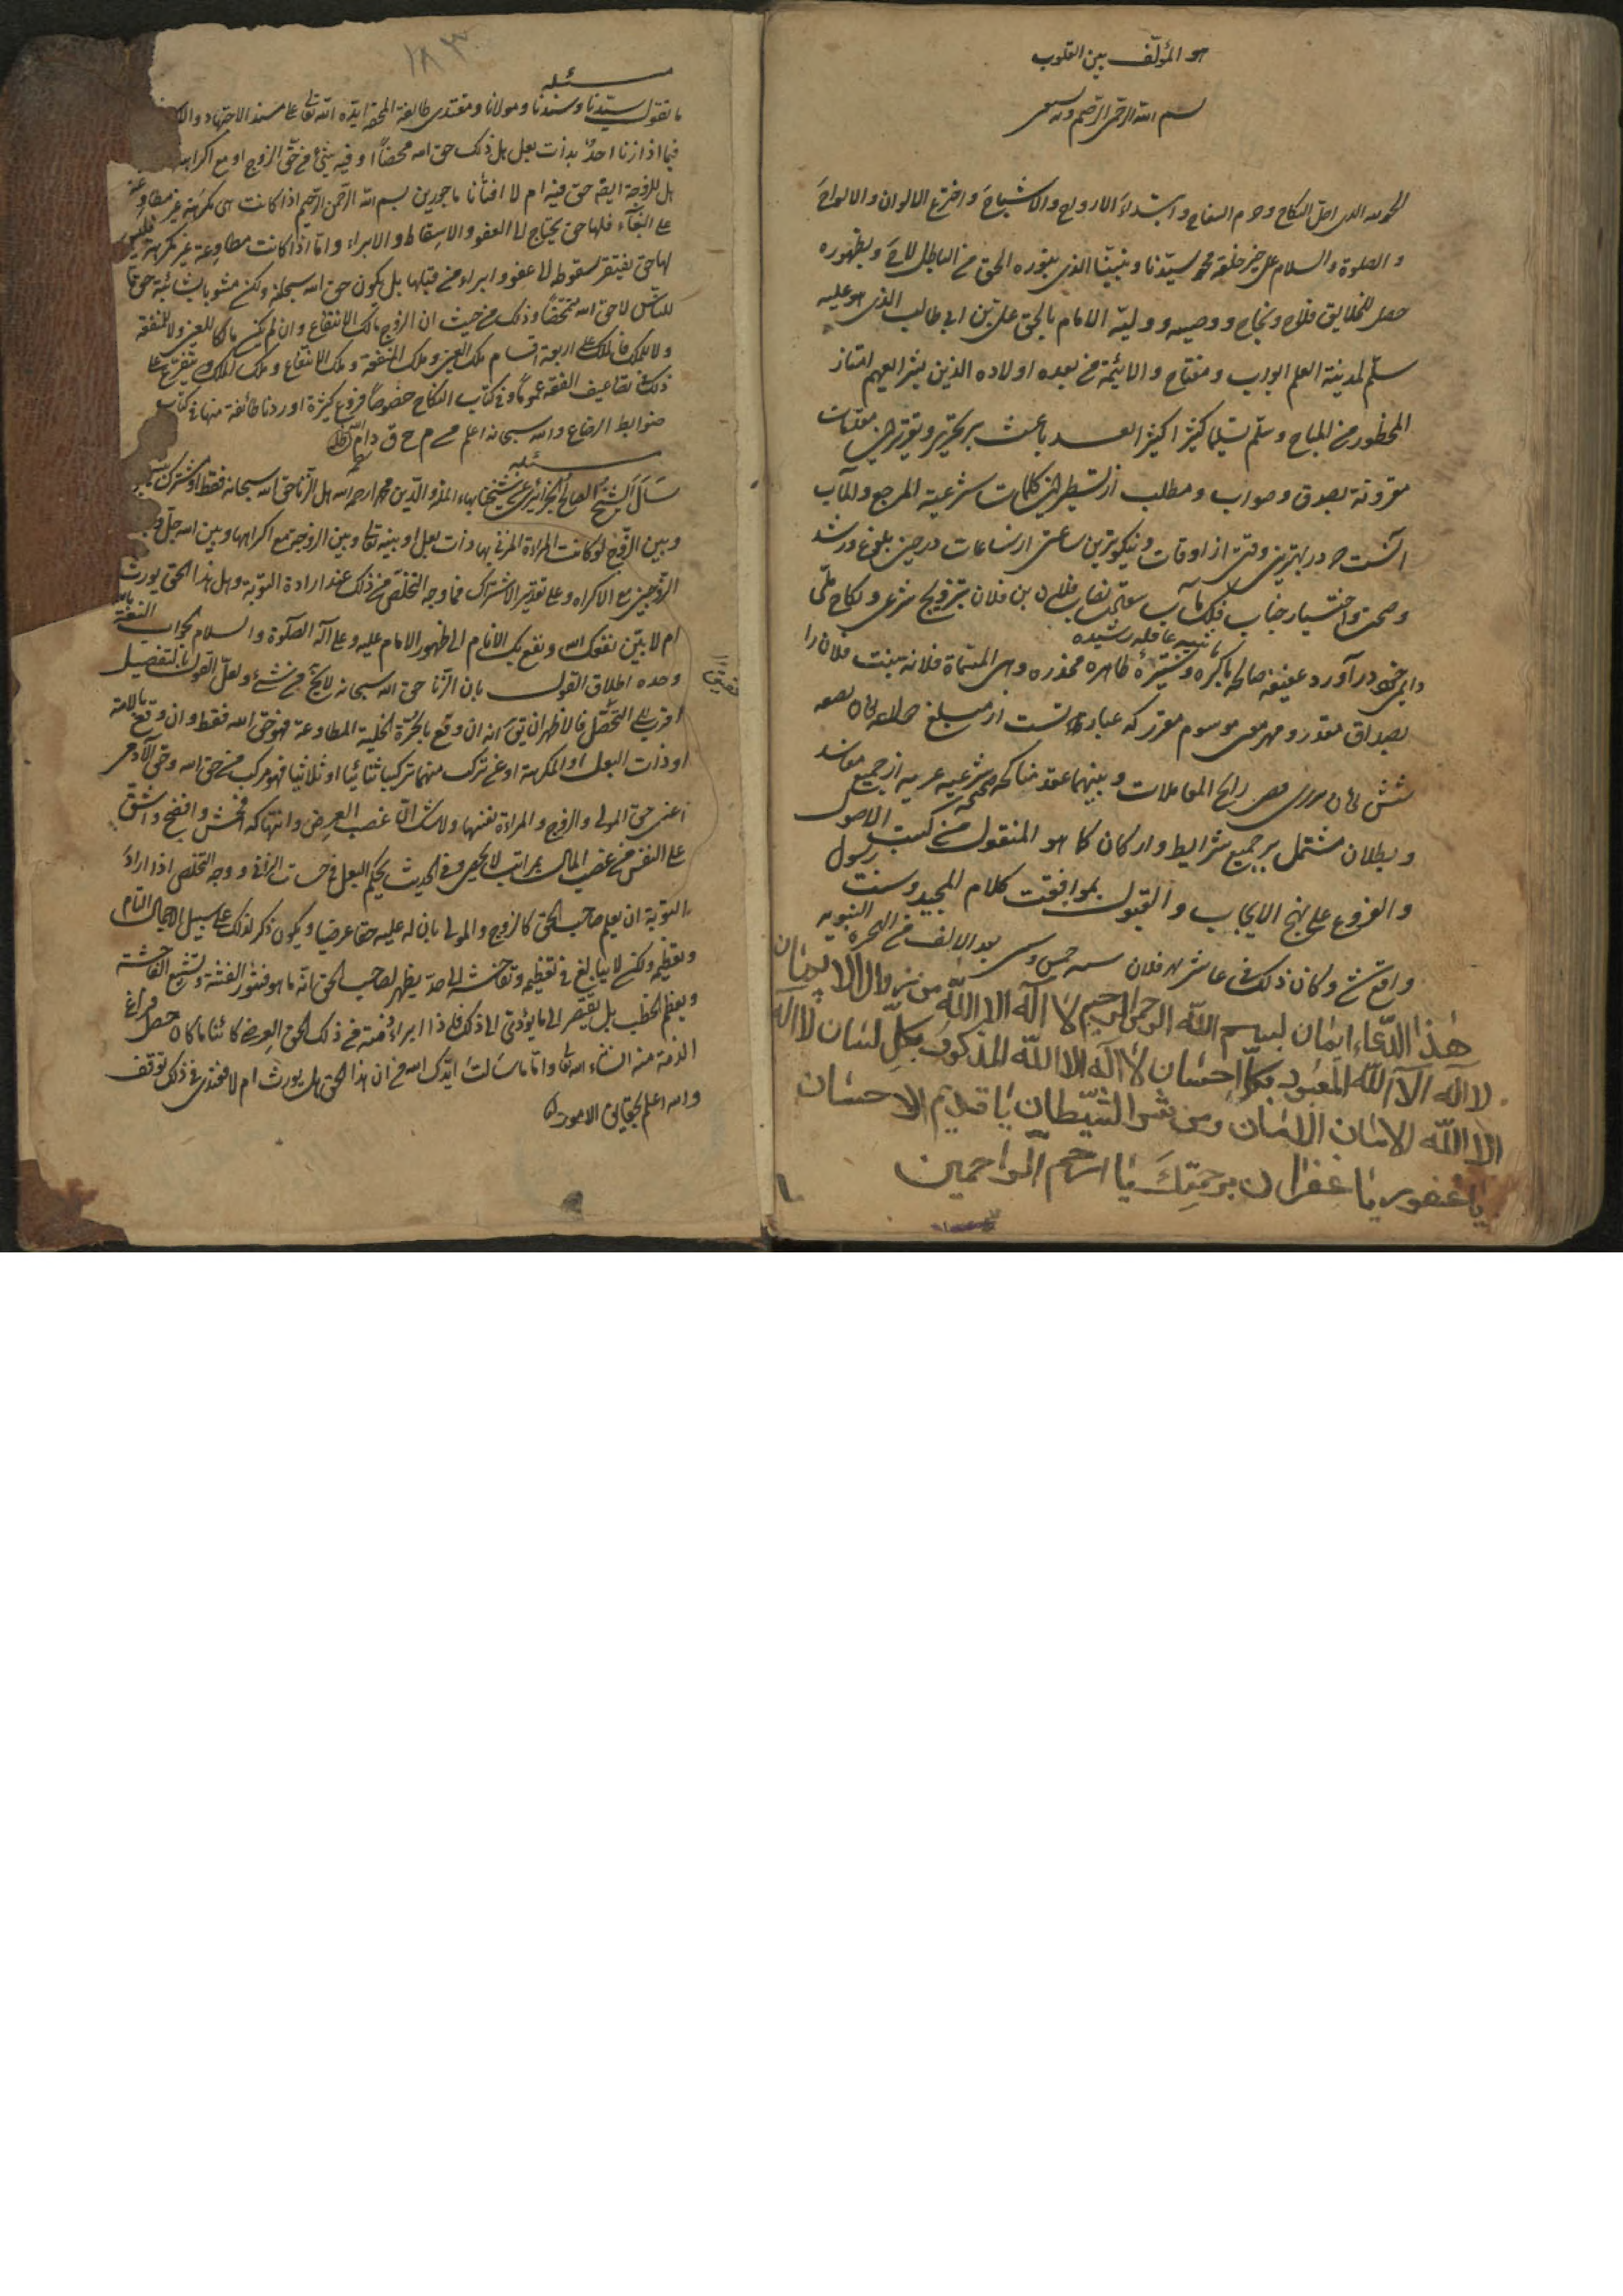 هو المؤلّف بين القلوب
بسم الله الرحمن الرحيم وبه نستعين
الحمد لله الذي احلّ النكاح وحرم السفاح وابتداء الارواح والاشباح واخترع الالوان والالواح
والصلوة والسلام على خير خلقه محمد سيّدنا ونبيّنا الذي بنوره الحق من الباطل لاح وبظهوره
حصل للخلايق فلاح ونجاح ووصيه ووليّه الامام بالحق علي بن ابي طالب الذي هو عليه
سلّم لمدينة العلم الباب ومفتاح والائمة من بعده اولاده الذين امتاز
المحظور من المباح وسلّم تسليما كثيرا كثيرا بعد باعث بر تحرير وتقرير اين مقدمات
مقرونة بصدق وصواب ومطلب از تسطير اين كلمات شرعية المرجع والمآب
آنست كه در بهترين وقتى از اوقات ونيكوترين ساعتى از ساعات در حين بلوغ ورشد
وصحت واختيار جناب فلان بن فلان بتزويج شرعى ونكاح ملّى
يا ثيبه عاقله رشيده
دايمى خود درآورد عفيفه صالحه باكره طاهره مخدره وهى المسمّاة فلانه بنت فلان را
بصداق مقدر ومهر موسوم مقرر كه عبارتست از مبلغ
شش رايج المعاملات وبينهما عقد مناكحه صحيحه شرعيه از جميع مفاسد
وبطلان مشتمل بر جميع شرايط واركان كما هو المنقول من كتب الاصول
والفروع على نهج الايجاب والقبول بموافقت كلام المجيد وسنت رسول
واقع شد وكان ذلك فى عاشر شهر فلان سنه بعد الالف من الهجرة النبويه
هذا الدّعاء ايمان لبسم الله الرحمن الرحيم لا اله الا الله من زوال الايمان
لا اله الا الله المعبود بكلّ احسان لا اله الا الله المذكور بكلّ لسان لا اله
الا الله الامان الامان ومن شر الشيّطان يا قديم الاحسان
يا غفور يا غفران برحمتك يا ارحم الراحمين
١٨٣
مسئله
ما تقول سيّدنا وسندنا ومولانا ومقتدى طائفة المحقة ايّده الله تعالى على مسند الاجتهاد
فيما اذا زنا احد بذات بعل هل ذلك حق الله محضاً او فيه شيئ من حقّ الزوج او مع اكراهها
هل للزوجة ايضا حق فيه ام لا افتنا ماجورين بسم الله الرحمن الرحيم اذا كانت هى مكرهة غير مطاوعة
على البغاء فلها حق يحتاج الى العفو والاسقاط والابراء وامّا اذا كانت مطاوعة غير مكرهة فليس
لها حق يفتقر سقوطه الى عفو وابراء من قبلها بل يكون حق الله سبحانه ولكن مشوبا بشائبة حق ما
للناس لا حق الله متمحضاً وذلك من حيث ان الزوج مالك الانتفاع وان لم يكن مالكا للعين ولا للمنفعة
ولا للملك فالملك على اربعة اقسام ملك العين وملك المنفعة وملك الانتفاع وملك الملك ويتفرع على
ذلك فى تضاعيف الفقه عموماً وفى كتاب النكاح خصوصاً فروع كثيرة اوردنا طائفة منها فى كتاب
ضوابط الرضاع والله سبحانه اعلم م ح ق دام ظله
مسئله
سأل الشيخ الصالح الجزائرى عن شيخنا بهاء الملة والدّين محمد رحمه الله هل الزنا حق الله سبحانه فقط او مشترك بينه
وبين الزوج لو كانت المراة المزنى بها ذات بعل او بينه تعالى وبين الزوجة مع اكراهها وبين الله جلّ
الزوجين مع الاكراه وعلى تقدير الاشتراك فما وجه التخلّص من ذلك عند ارادة التوبة وهل هذا الحق يورث
ام لا بيّن نفعك الله ونفع بك الانام الى ظهور الامام عليه وعلى آله الصلوة والسلام الجواب الثقة بالله
وحده اطلاق القول بان الزنا حق الله سبحانه لا يخ من شئ ولعلّ القول بالتفصيل
اقرب الى التحصّل فالاظهر ان يق انه ان وقع بالحرّة الخلية المطاوعة فهو حق الله فقط وان وقع بالامة
او ذات البعل او المكرهة او من تركب منهما تركيبا ثنائيا او ثلاثيا فهو مركب من حق الله وحق الآدمى
اعنى حق المولى والزوج والمراة نفسها ولا شك انّ غصب العرض وانتهاكه افحش وافضح واشقّ
على النفس من غصب المال بمراتب لا تحصى وفى الحديث يحكم البعل فى حسنات الزانى ووجه التخلص اذا اراد
التوبة ان يعلم صاحب الحق كالزوج والمولى بان له عليه حقا عرضيا ويكون ذكره لذلك على سبيل الاجمال التام
وتعظيمه ولكن لا يبالغ فى تعظيمه وتفاحشه الى حدّ يظهر لصاحب الحق انّه ما هو فتثور الفتنة وتشيع الفاحشة
ويعظم الخطب بل يقتصر الى ما لا يؤدى الى ذلك فاذا ابراء ذمته من ذلك الحق العرضى كائنا ما كان حصل فراغ
الذمة منه انشاء الله تعالى وامّا ما سالت ايّدك الله من ان هذا الحق هل يورث ام لا فعندى فى ذلك توقف
والله اعلم بحقايق الامور